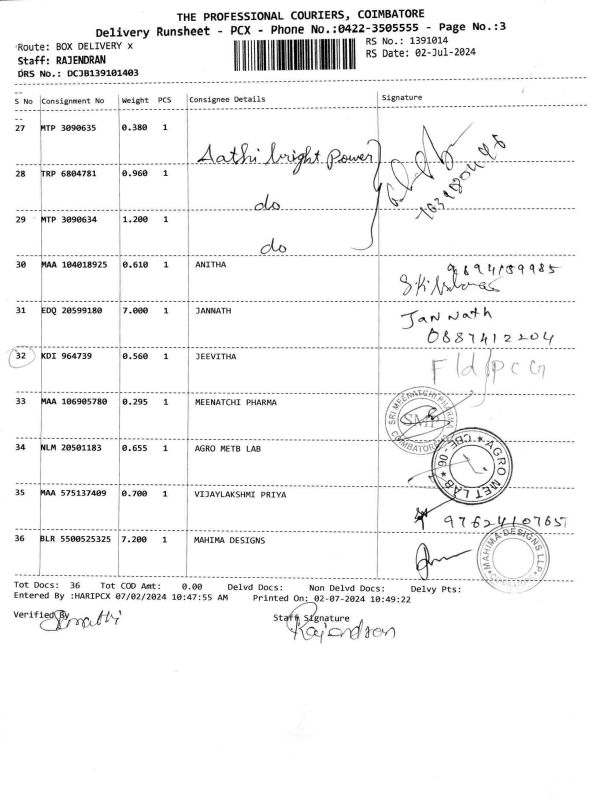 THE PROFESSIONAL COURIERS, COIMBATORE
Delivery Runsheet - PCX - Phone No.:0422-3505555 - Page No.:3
Route: BOX DELIVERY x
RS No.: 1391014
Staff: RAJENDRAN
RS Date: 02-Jul-2024
DRS No.: DCJB139101403
S No Consignment No Weight PCS Consignee Details Signature
27 MTP 3090635 0.380 1
Aathi bright Power
28 TRP 6804781 0.960 1
do
29 MTP 3090634 1.200 1
do
30 MAA 104018925 0.610 1 ANITHA
9894159985
31 EDQ 20599180 7.000 1 JANNATH
Jannath
0887412204
32 KDI 964739 0.560 1 JEEVITHA
F/d/PCG
33 MAA 106905780 0.295 1 MEENATCHI PHARMA
SRI MEENATCHI PHARMA
SMP
COIMBATORE
34 NLM 20501183 0.655 1 AGRO METB LAB
AGRO MET LAB * CBE-06 *
35 MAA 575137409 0.700 1 VIJAYLAKSHMI PRIYA
9762410765
36 BLR 5500525325 7.200 1 MAHIMA DESIGNS
MAHIMA DESIGNS LLP
Tot Docs: 36 Tot COD Amt: 0.00 Delvd Docs: Non Delvd Docs: Delvy Pts:
Entered By :HARIPCX 07/02/2024 10:47:55 AM Printed On: 02-07-2024 10:49:22
Verified By
Staff Signature
Rajendran